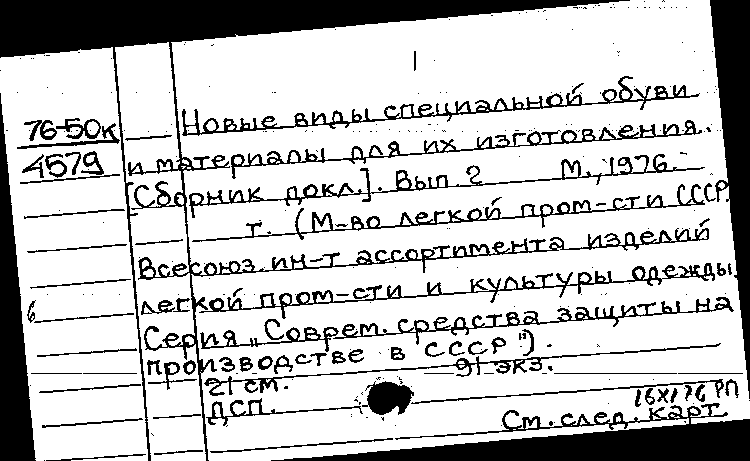 1
76-50к
4579
Новые виды специальной обуви
и материалы для их изготовления.
[Сборник докл.]. Вып. 2 М., 1976.-
т. (М-во легкой пром-сти СССР.
Всесоюз. ин-т ассортимента изделий
легкой пром-сти и культуры одежды.
Серия „Соврем. средства защиты на
производстве в СССР").
21 см. 91 экз.
ДСП.
16X176 РП
См. след. карт.